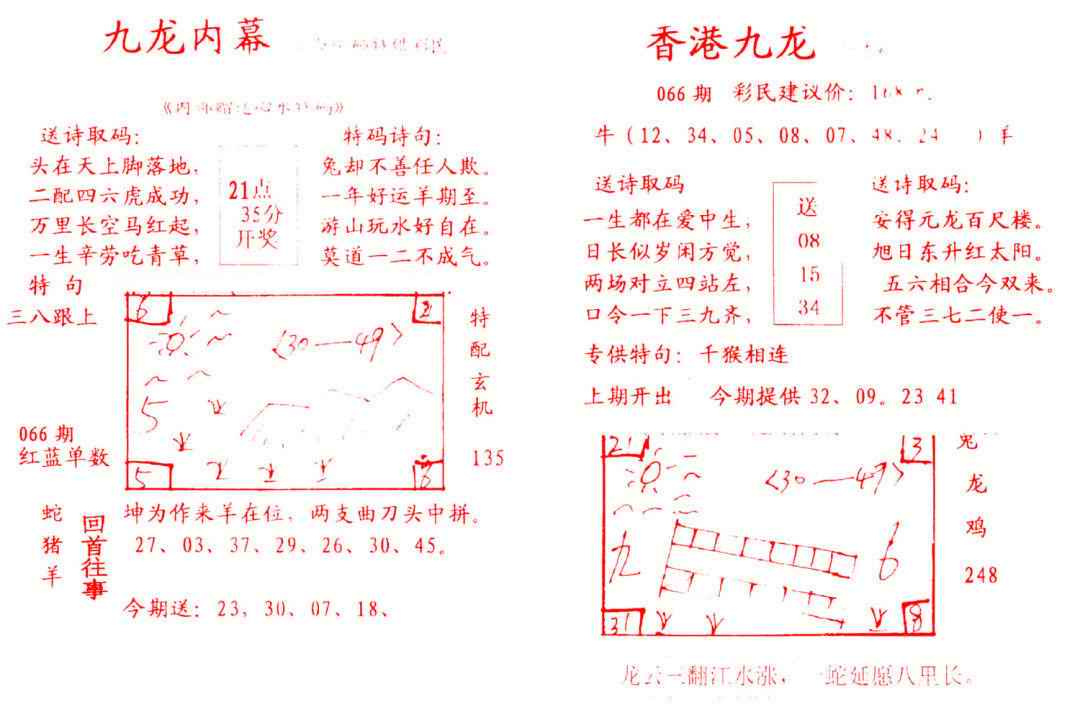 九龙内幕
送诗取码：
头在天上脚落地，
二配四六虎成功，
万里长空马红起，
一生辛劳吃青草，
21点
35分
开奖
特码诗句：
兔却不善任人欺。
一年好运羊期至。
游山玩水好自在。
莫道一二不成气。
特句
三八跟上
066期
红蓝单数
6
2
〈30—49〉
5
5
8
特配玄机
135
蛇猪羊
回首往事
坤为作来羊在位，两支曲刀头中拼。
27、03、37、29、26、30、45。
今期送：23，30、07、18、
香港九龙
066期 彩民建议价：
牛（12、34、05、08、07、48、24 ）羊
送诗取码
一生都在爱中生，
日长似岁闲方觉，
两场对立四站左，
口令一下三九齐，
送
08
15
34
送诗取码：
安得元龙百尺楼。
旭日东升红太阳。
五六相合今双来。
不管三七二使一。
专供特句：千猴相连
上期开出 今期提供32、09。23 41
21
3
〈30—49〉
九
6
31
8
兔
龙
鸡
248
龙云三翻江水涨，一蛇延愿八里长。